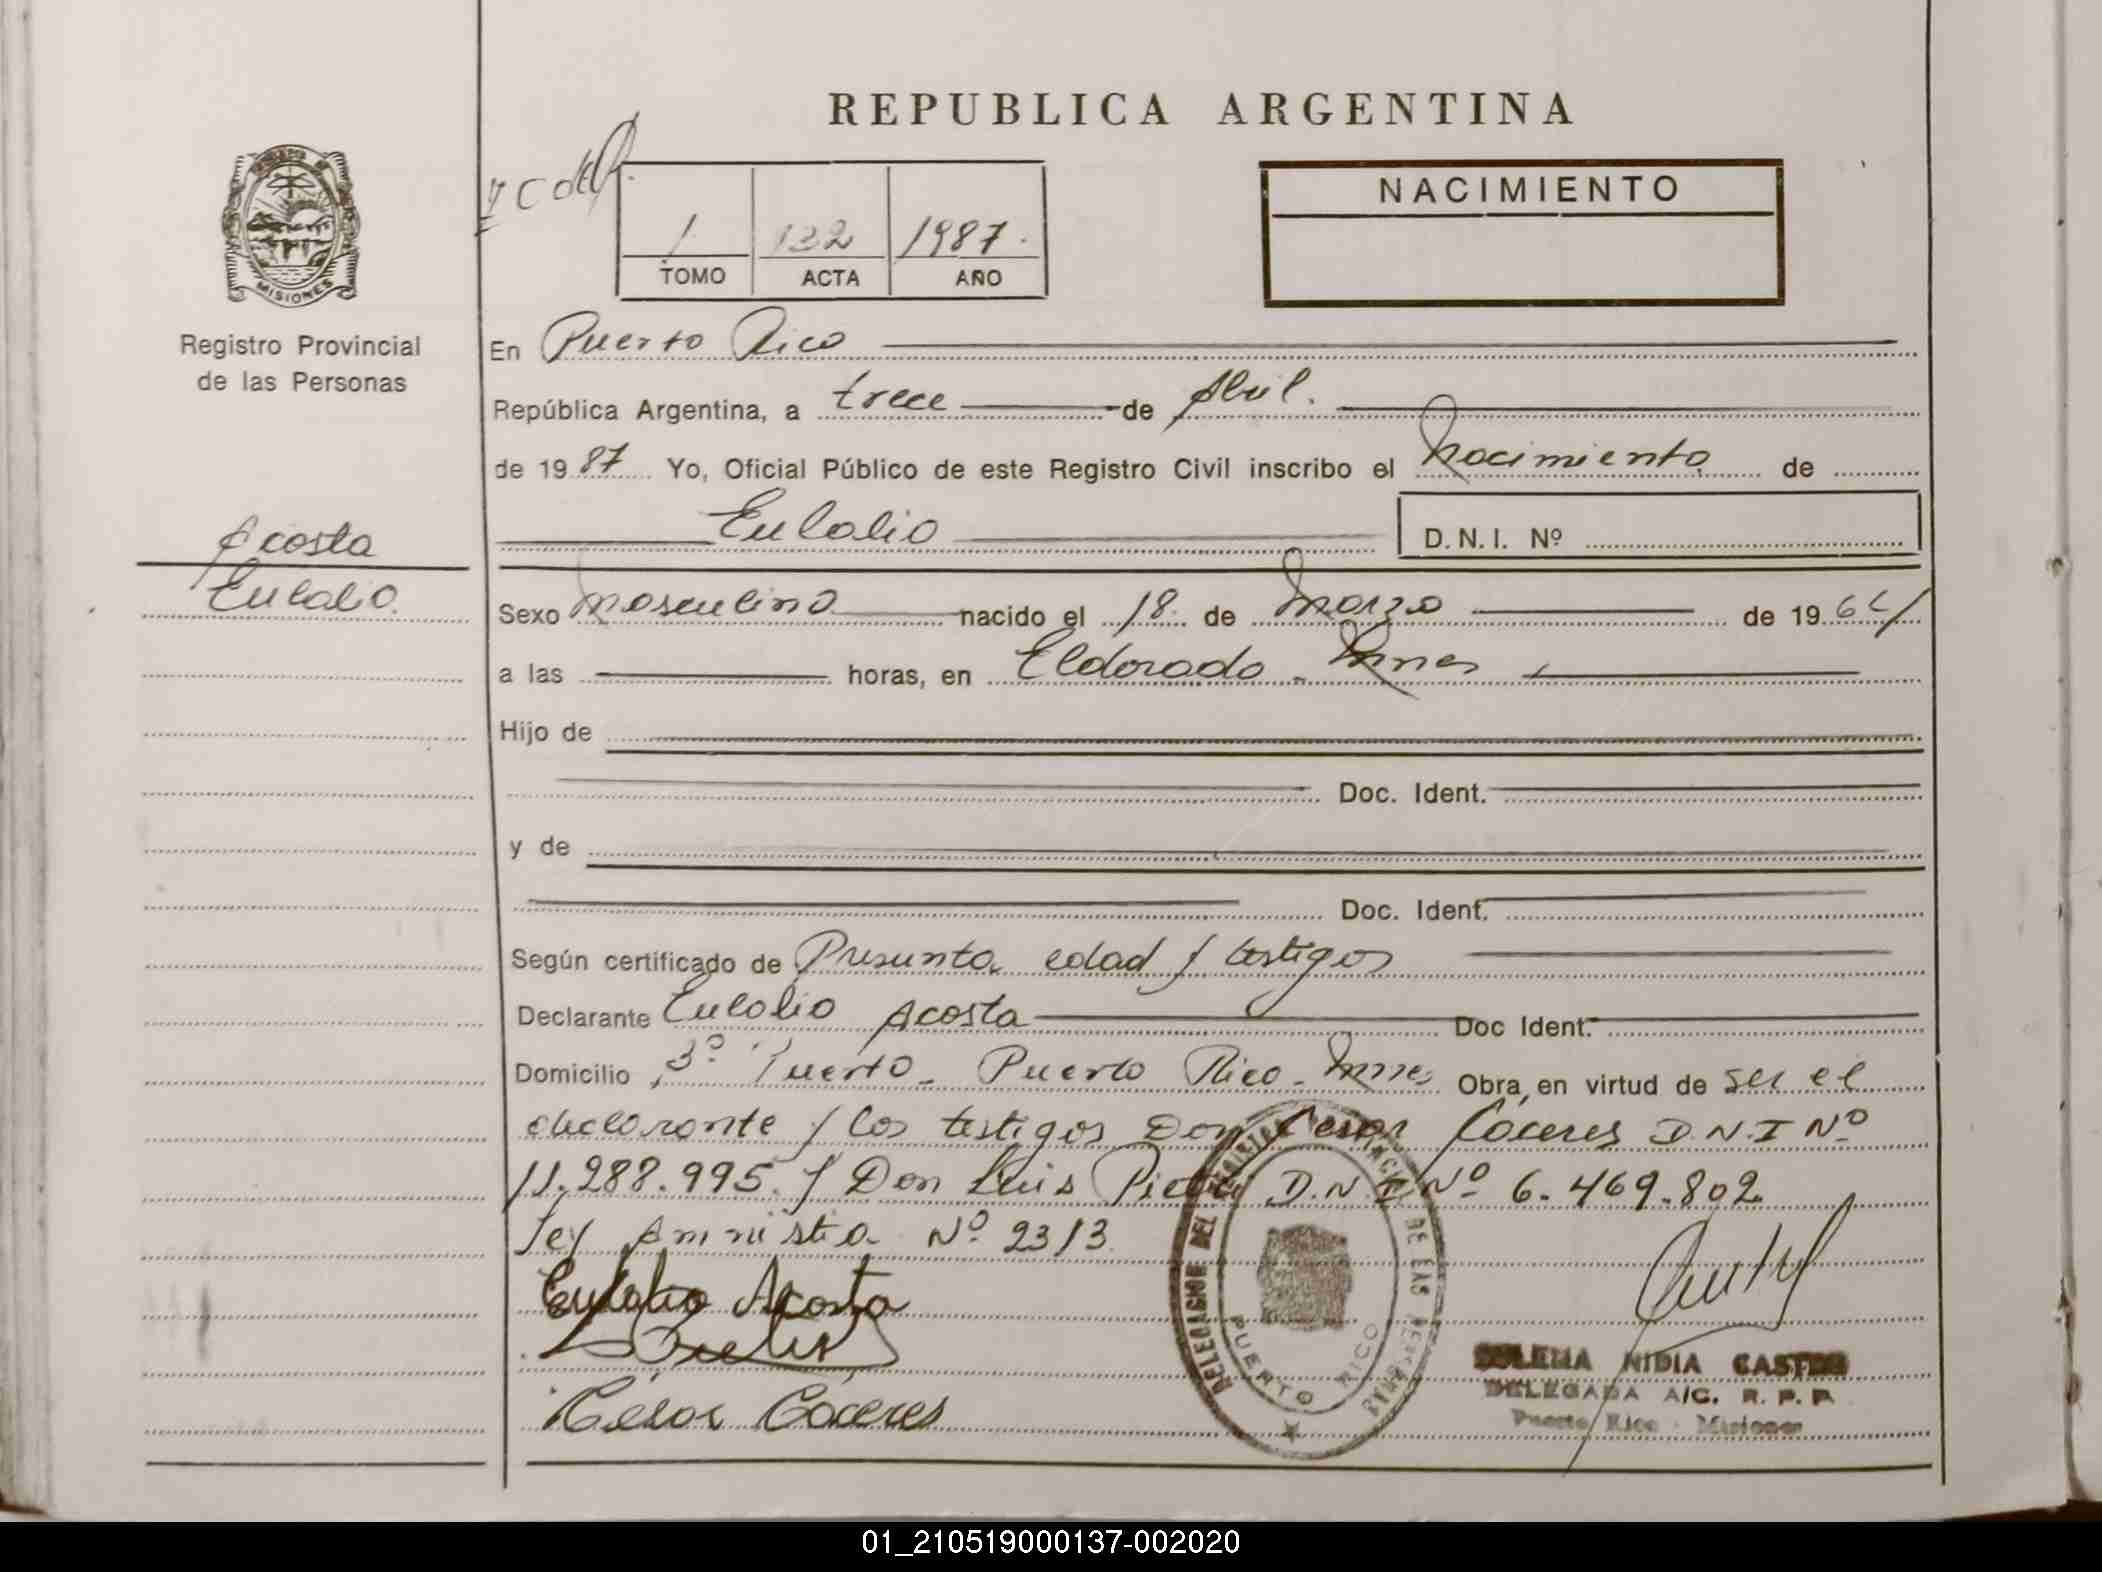 REPUBLICA ARGENTINA
NACIMIENTO
1 132 1987.
TOMO ACTA AÑO
MISIONES
Registro Provincial
de las Personas
En Puerto Rico
República Argentina, a trece de Abril.
de 1987 Yo, Oficial Público de este Registro Civil inscribo el Nacimiento de
Eulalio
D.N.I. Nº
Acosta
Eulalio.
Sexo Masculino nacido el 18 de Marzo de 1964
a las horas, en Eldorado - Mnes
Hijo de
Doc. Ident.
y de
Doc. Ident.
Según certificado de Presunta edad y testigos
Declarante Eulalio Acosta Doc Ident.
Domicilio 3º Puerto - Puerto Rico - Mnes Obra en virtud de ser el
declarante y los testigos Don Cesar Cáceres D.N.I Nº
11.288.995. y Don Luis D.N.I Nº 6.469.802
Ley Amnistia Nº 2313
Eulalio Acosta
César Cáceres
DELEGACION DEL REGISTRO PROVINCIAL DE LAS PERSONAS
PUERTO RICO
NIDIA CASTRO
DELEGADA A/C. R. P. P.
Puerto Rico - Misiones
01_210519000137-002020